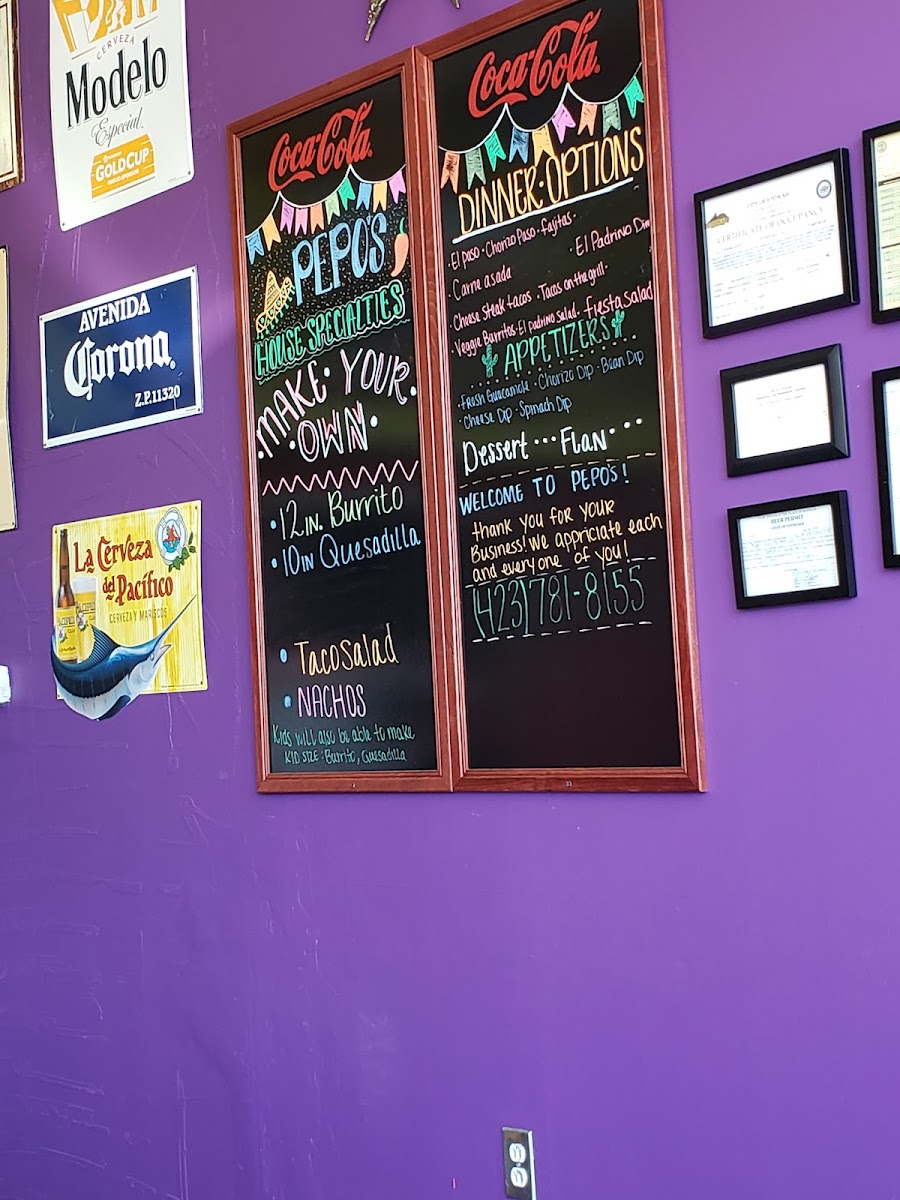 CERVEZA
Modelo
Especial
GOLD CUP
AVENIDA
Corona
Z.P. 11320
La Cerveza
del Pacífico
CERVEZA Y MARISCOS
Coca-Cola
PEPO'S
HOUSE SPECIALTIES
•MAKE•YOUR•
•OWN•
•12 IN. Burrito
•10 IN Quesadilla
• Taco Salad
• NACHOS
Kids will also be able to make
KID SIZE: Burrito, Quesadilla
Coca-Cola
DINNER•OPTIONS
•El paso•Chorizo Paso•fajitas•
•Carne asada •El Padrino Din
•Cheese Steak tacos •Tacos on the grill•
Veggie Burritos•El padrino Salad•Fiesta Salad
APPETIZERS
•Fresh Guacamole •Chorizo Dip •Bean Dip
•Cheese Dip •Spinach Dip
Dessert•••Flan•••
WELCOME TO PEPO'S!
thank you for your
Business! We appriciate each
and everyone of you!
(423)781-8155
CERTIFICATE OF OCCUPANCY
BEER PERMIT